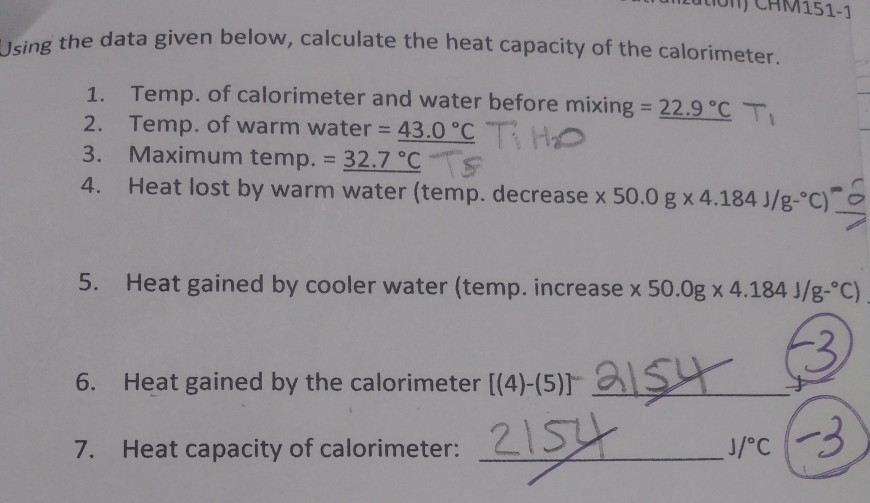 CHM151-1
Using the data given below, calculate the heat capacity of the calorimeter.
1. Temp. of calorimeter and water before mixing = 22.9 °C T1
2. Temp. of warm water = 43.0 °C Ti H2O
3. Maximum temp. = 32.7 °C
4. Heat lost by warm water (temp. decrease x 50.0 g x 4.184 J/g-°C)
5. Heat gained by cooler water (temp. increase x 50.0g x 4.184 J/g-°C)
-3
6. Heat gained by the calorimeter [(4)-(5)] 2154
7. Heat capacity of calorimeter: 2154 J/°C -3